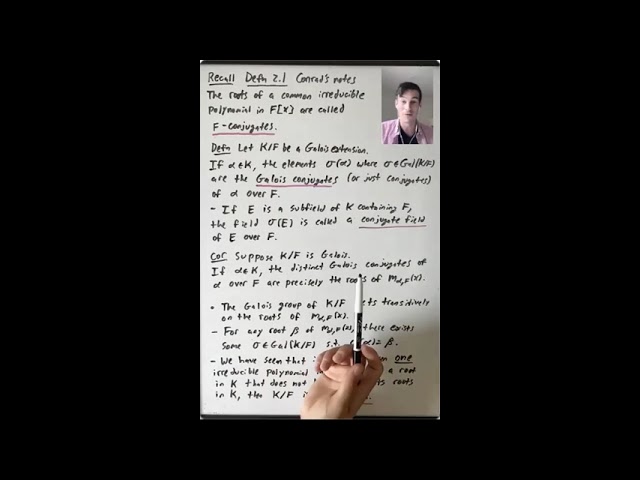 Recall Defn 2.1 Conrad's notes
The roots of a common irreducible
polynomial in F[x] are called
F-conjugates.
Defn Let K/F be a Galois extension.
If α∈K, the elements σ(α) where σ∈Gal(K/F)
are the Galois conjugates (or just conjugates)
of α over F.
- If E is a subfield of K containing F,
the field σ(E) is called a conjugate field
of E over F.
Cor Suppose K/F is Galois.
If α∈K, the distinct Galois conjugates of
α over F are precisely the roots of m_{α,F}(x).
• The Galois group of K/F acts transitively
on the roots of m_{α,F}(x).
- For any root β of m_{α,F}(x), there exists
some σ∈Gal(K/F) s.t. σ(α)=β.
- We have seen that one
irreducible polynomial a root
in K that does not roots
in K, then K/F